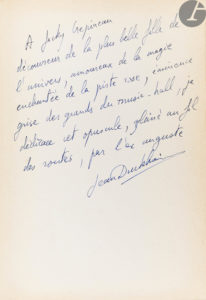 A Jacky Crépineau
découvreur de la plus belle fille de
l'univers, amoureux de la magie
enchantée de la piste rose, éminence
grise des grands du music-hall, je
dédicace cet opuscule, glané au fil
des routes, par l'ex auguste
Jean